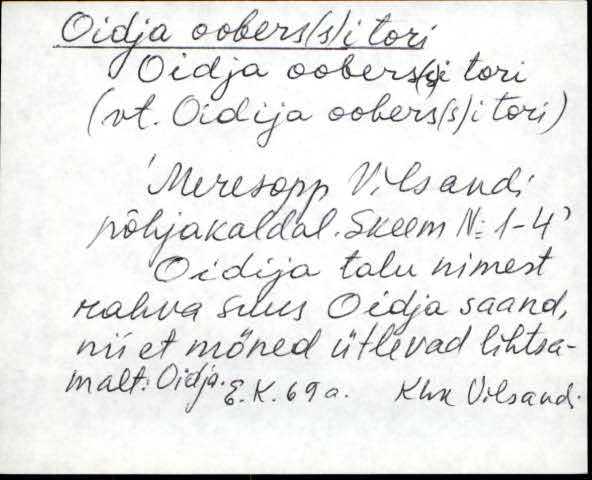 Oidja oobers(s)i tori
Oidja oobers(s)i tori
(vt. Oidija oobers(s)i tori)
'Meresopp Vilsandi
põhjakaldal. Skeem N: 1-4'
Oidija talu nimest
rahva suus Oidja saand,
nii et mõned ütlevad lihtsa-
malt: Oidja. E.K. 69 a. Khk Vilsandi